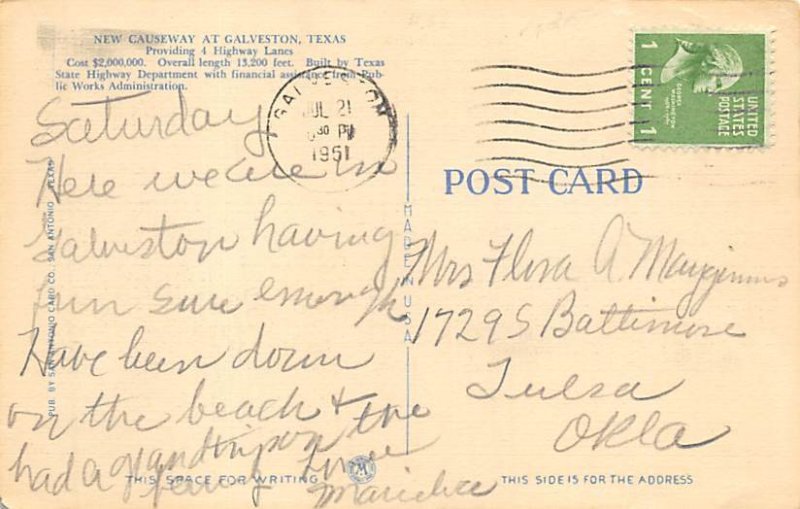 NEW CAUSEWAY AT GALVESTON, TEXAS
Providing 4 Highway Lanes
Cost $2,000,000. Overall length 13,200 feet. Built by Texas
State Highway Department with financial assistance from Pub-
lic Works Administration.
Saturday
Here we are in
Galveston having
fun sure enough
Have been down
on the beach & the
had a grand trip on the
ferry Love
PUB. BY SAN ANTONIO CARD CO. SAN ANTONIO, TEXAS
THIS SPACE FOR WRITING
GALVESTON
JUL 21
30 PM
1951
MADE IN USA
1 CENT 1
GEORGE WASHINGTON
UNITED STATES POSTAGE
POST CARD
Mrs Flora A
1729 S Baltimore
Tulsa
Okla
THIS SIDE IS FOR THE ADDRESS